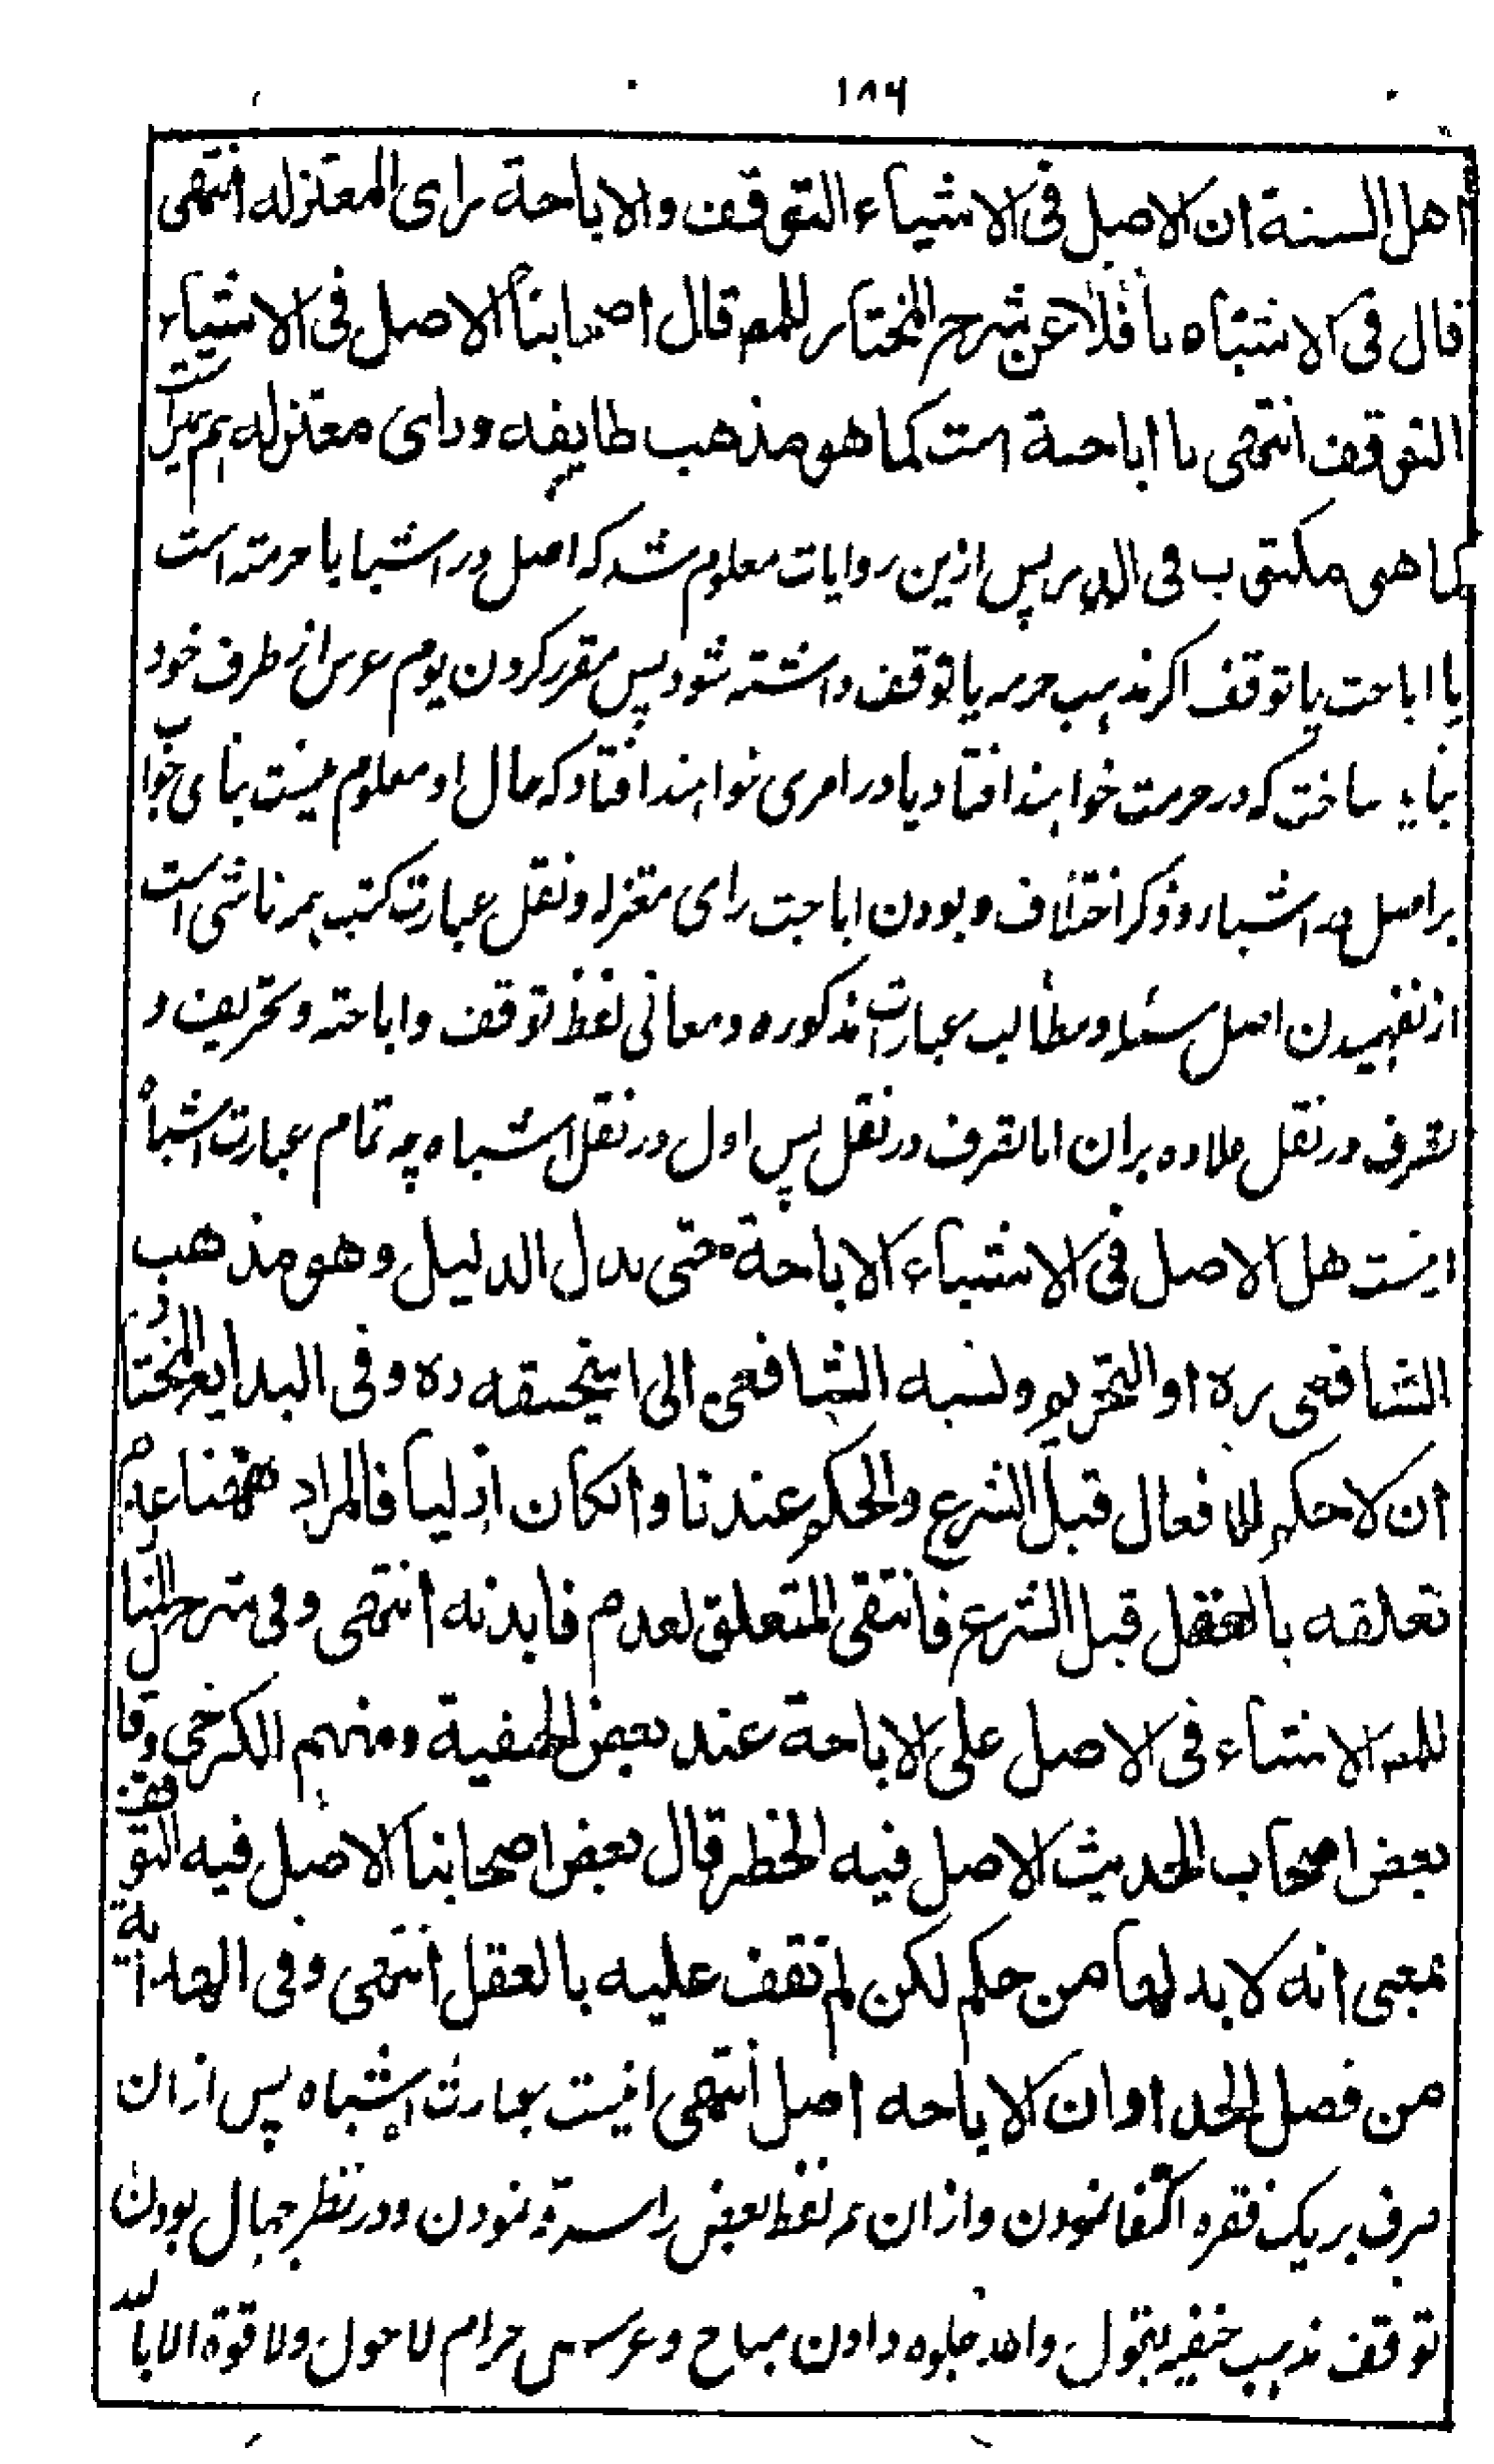 ١٨٦
اهل السنة ان الاصل فى الاشياء التوقف والاباحة راى المعتزله انتهى
قال فى الاشباه ناقلا عن شرح المختار للمص قال اصحابنا الاصل فى الاشياء
التوقف انتهى يا اباحة است كما هو مذهب طايفه وراى معتزله هم برين است
كما هى مكتوب فى الدر پس ازين روايات معلوم شد كه اصل در اشيا يا حرمته است
يا اباحت يا توقف اگر مذہب حرمه يا توقف داشته شود پس مقرر كردن يوم عرس از طرف خود
نبايد ساخت كه در حرمت خواہند افتاد يا در امرى خواہند افتاد كه حال او معلوم نيست بناى جواب
بر اصل اشيا و ذكر اختلاف و بودن اباحت راى معتزله و نقل عبارت كتب ہمه ناشى است
از نفہميدن اصل مسئله و مطالب عبارات مذكوره و معانى لفظ توقف و اباحته و تحريف و
تصرف در نقل علاوه بران اما تصرف در نقل پس اول در نقل اشباه چه تمام عبارت اشباه
اينست هل الاصل فى الاشياء الاباحة حتى يدل الدليل وهو مذهب
الشافعى ره او التحريم ونسبه الشافعى الى ابيحنيفه ره وفى البدايع المختار
ان لا حكم للافعال قبل الشرع والحكم عندنا وانكان ازليا فالمراد ههنا عدم
تعلقه بالفعل قبل الشرع فانتفى التعلق لعدم فايدته انتهى وفى شرح المنار
للمص الاشياء فى الاصل على الاباحة عند بعض الحنفية ومنهم الكرخى وقال
بعض اصحاب الحديث الاصل فيه الحظر قال بعض اصحابنا الاصل فيه التوقف
بمعنى انه لا بد لها من حكم لكن لم نقف عليه بالعقل انتهى وفى الهداية
من فصل الحداد ان الاباحه اصل انتهى اينست عبارت اشباه پس ازان
صرف بريك فقره اكتفا نمودن و ازان هم لفظ بعض را سرقه نمودن و در نظر جہال بودن
توقف مذہب حنفيه بقول واحد جلوه دادن مباح و عرس حرام لا حول ولا قوة الا بالله